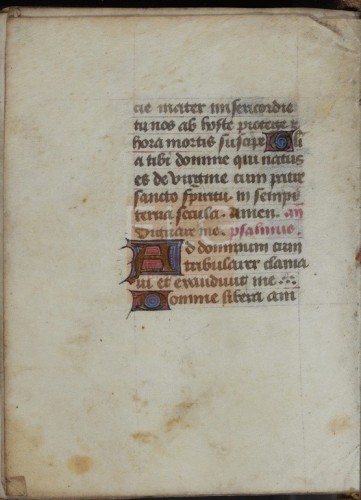 cie mater misericordie
tu nos ab hoste protege et
hora mortis suscipe Glori
a tibi domine qui natus
es de virgine cum patre
sancto spiritu. in sempi
terna secula. Amen. an
Dignare me. psalmus.
Ad dominum cum
tribularer clama
ui et exaudiuit me
Domine libera ani